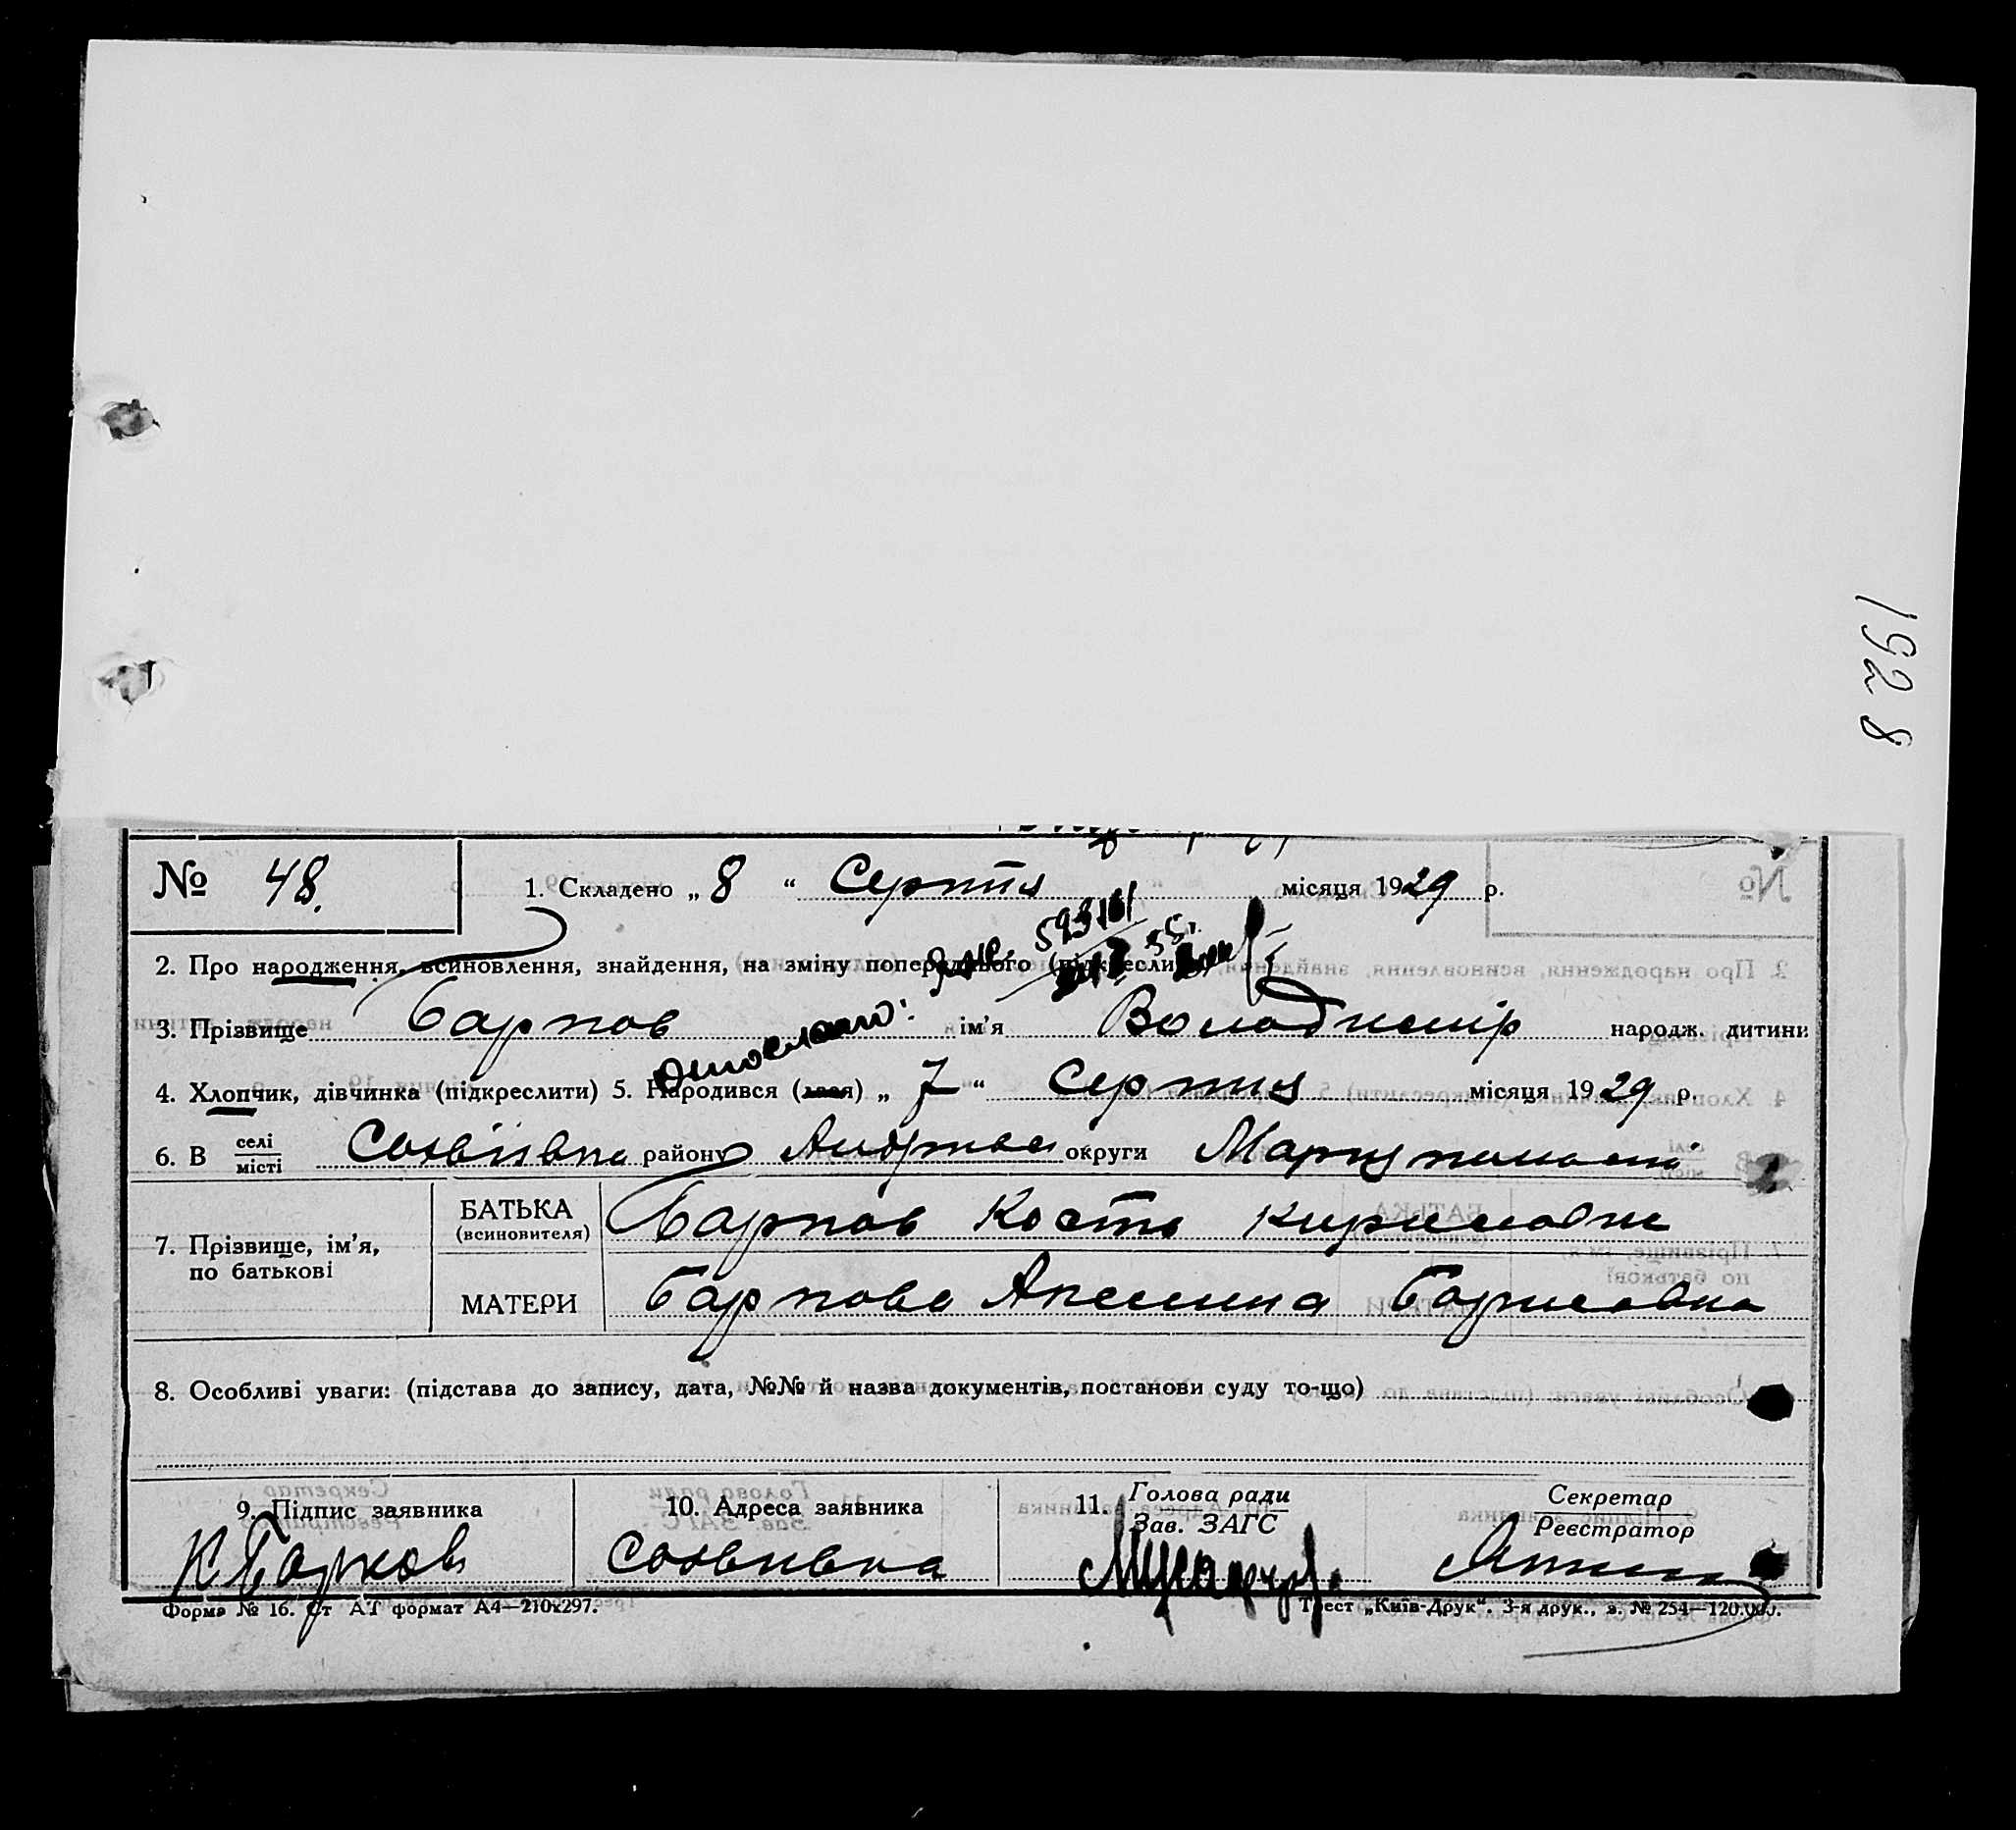 1928
№ 48.
1. Складено „ 8 “ Серпня місяця 1929 р.
2. Про народження, всиновлення, знайдення, на зміну попереднього (підкреслити)
3. Прізвище Барков ім’я Володимір народж. дитини
4. Хлопчик, дівчинка (підкреслити) 5. Народився (лася) „ 7 “ Серпня місяця 1929 р.
6. В селі місті Софіївка району Андріївськ округи Маріупольськ
7. Прізвище, ім’я, по батькові
БАТЬКА (всиновителя) Барков Кость Кирилович
МАТЕРИ Баркова Акелина Борисовна
8. Особливі уваги: (підстава до запису, дата, №№ й назва документів, постанови суду то-що)
9. Підпис заявника
10. Адреса заявника
11. Голова ради Зав. ЗАГС
Секретар Реєстратор
К Барков
Форма № 16. Ст АТ формат А4—210х297.
Трест „Київ-Друк“. 3-я друк., з. № 254—120.000.